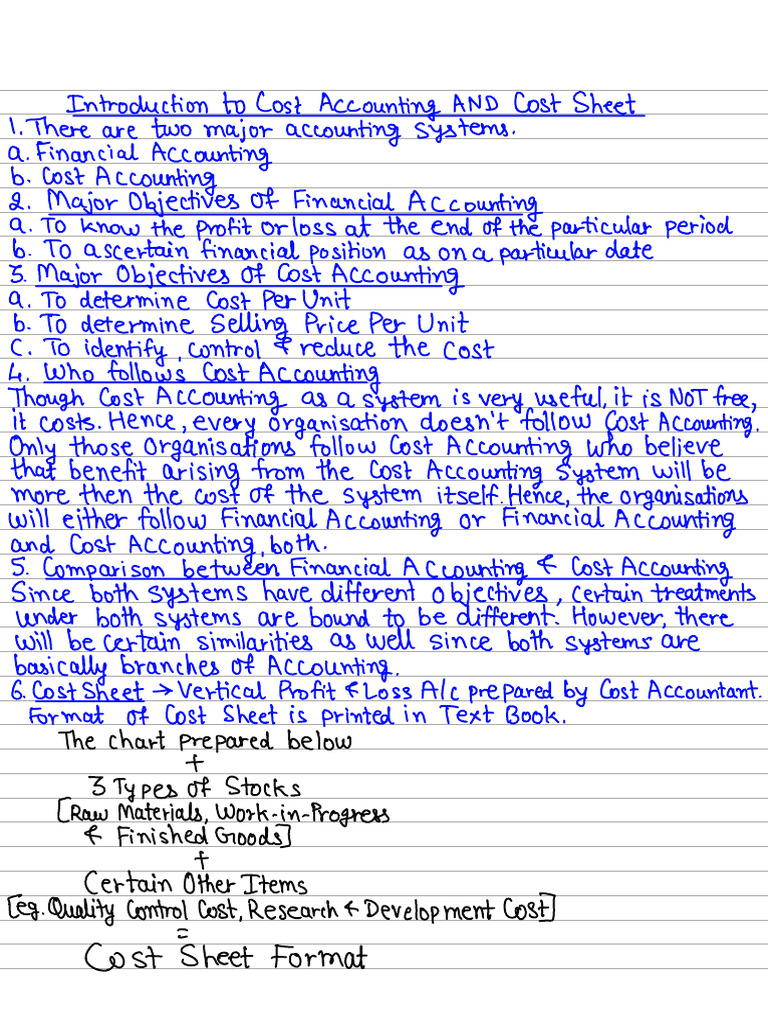 Introduction to Cost Accounting AND Cost Sheet
1. There are two major accounting systems.
a. Financial Accounting
b. Cost Accounting
2. Major Objectives of Financial Accounting
a. To know the Profit or loss at the end of the particular period
b. To ascertain financial position as on a particular date
3. Major Objectives of Cost Accounting
a. To determine Cost Per Unit
b. To determine Selling Price Per Unit
c. To identify, control & reduce the cost
4. Who follows Cost Accounting
Though Cost Accounting as a system is very useful, it is NOT free,
it costs. Hence, every organisation doesn't follow Cost Accounting.
Only those Organisations follow Cost Accounting who believe
that benefit arising from the Cost Accounting System will be
more then the cost of the system itself. Hence, the organisations
will either follow Financial Accounting or Financial Accounting
and Cost Accounting, both.
5. Comparison between Financial Accounting & Cost Accounting
Since both systems have different objectives, certain treatments
under both systems are bound to be different. However, there
will be certain similarities as well since both systems are
basically branches of Accounting.
6. Cost Sheet → Vertical Profit & Loss A/c prepared by Cost Accountant.
Format of Cost Sheet is printed in Text Book.
The chart prepared below
+
3 Types of Stocks
[Raw Materials, Work-in-Progress
& Finished Goods]
+
Certain Other Items
[eg. Quality Control Cost, Research & Development Cost]
=
Cost Sheet Format